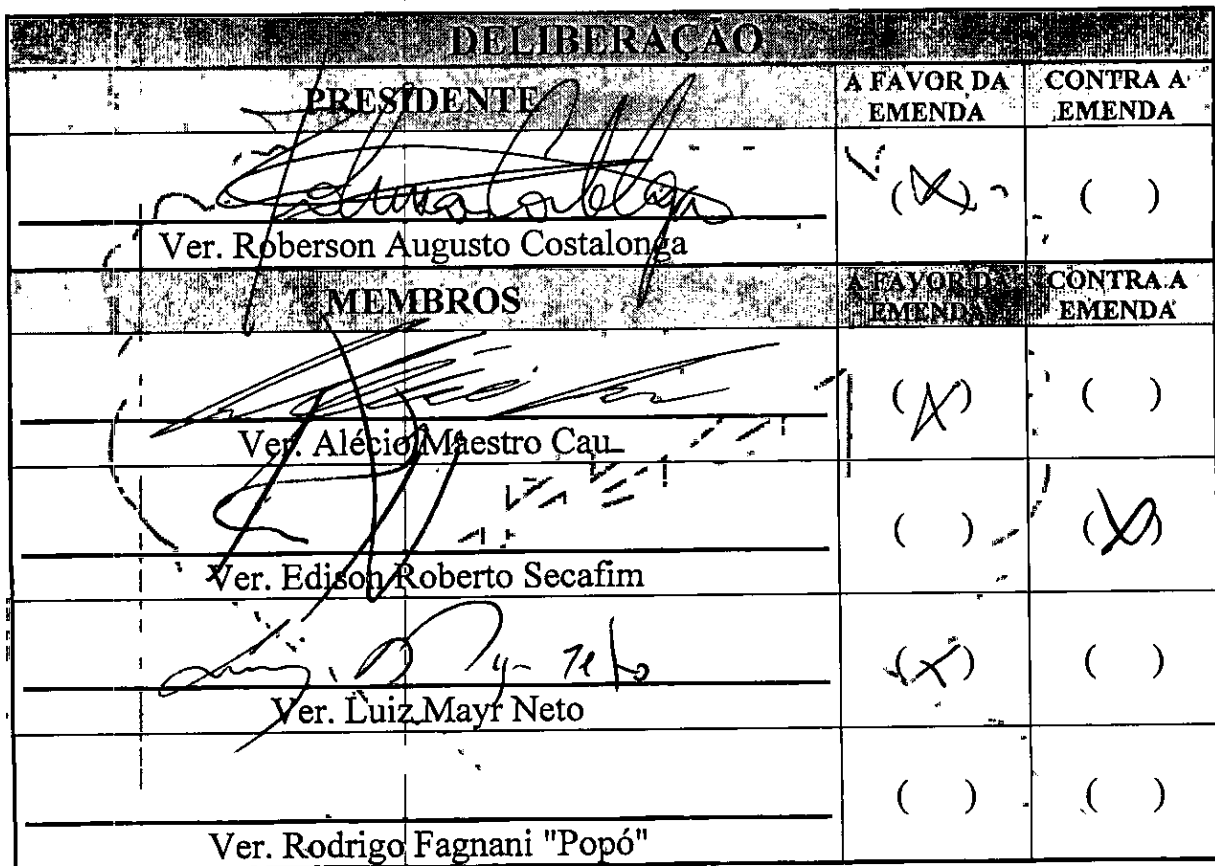 DELIBERAÇÃO
PRESIDENTE A FAVOR DA EMENDA CONTRA A EMENDA
(X) ( )
Ver. Roberson Augusto Costalonga
MEMBROS A FAVOR DA EMENDA CONTRA A EMENDA
(X) ( )
Ver. Alécio Maestro Cau
( ) (X)
Ver. Edison Roberto Secafim
(X) ( )
Ver. Luiz Mayr Neto
( ) ( )
Ver. Rodrigo Fagnani "Popó"